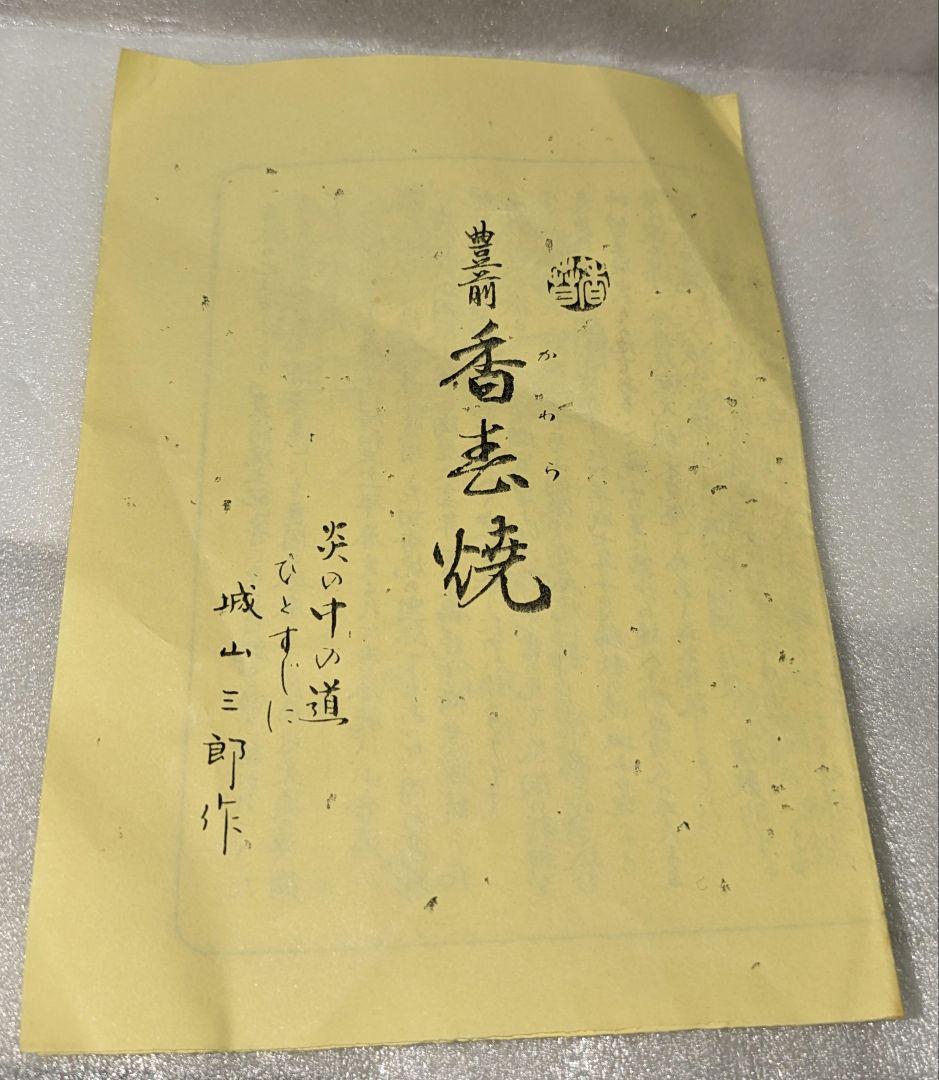 豊前
香春焼
かわら
炎の中の道
ひとすじに
城山三郎作